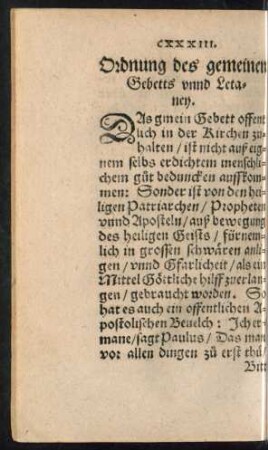 CXXXIII.
Ordnung des gemeinen
Gebetts vnnd Leta-
ney.
DAs gmein Gebett offent
lich in der Kirchen zů-
halten / ist nicht auß eig-
nem selbs erdichtem menschli-
chem gůt beduncken auffkom-
men: Sonder ist von den hei-
ligen Patriarchen / Propheten
vnnd Aposteln / auß bewegung
des heiligen Geists / fürnem-
lich in grossen schwären anli-
gen / vnnd Gfarlicheit / als ein
Mittel Göttliche hilff zuerlan-
gen / gebraucht worden. So
hat es auch ein offentlichen A-
postolischen Beuelch: Ich er-
mane / sagt Paulus / Das man
vor allen dingen zů erst thů /
Bitt